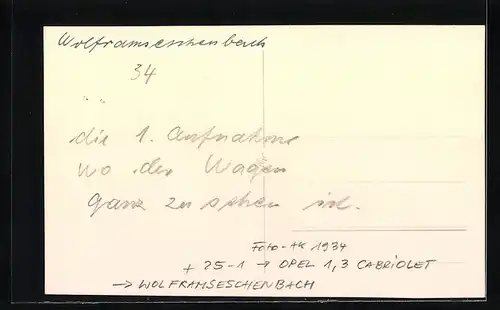 Wolframseschenbach
34
die 1. Aufnahme
wo der Wagen
ganz zu sehen ist.
Foto-AK 1934
+ 25-1 → OPEL 1,3 CABRIOLET
→ WOLFRAMSESCHENBACH